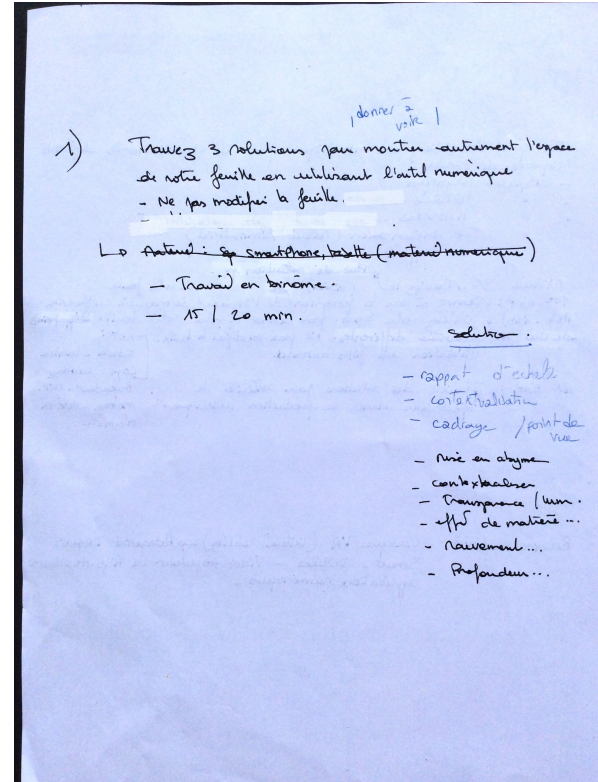 donner à
voir
1) Trouvez 3 solutions pour montrer autrement l'espace
de votre feuille en utilisant l'outil numérique
- Ne pas modifier la feuille.
Materiel : smartphone, tablette (materiel numerique)
- Travail en binôme.
- 15 / 20 min.
Solution :
- rappat d'echelle
- contextualisation
- cadrage / point de
vue
- mise en abyme
- contextualiser
- Transparence / lum.
- effet de matière...
- mouvement...
- Profondeur...